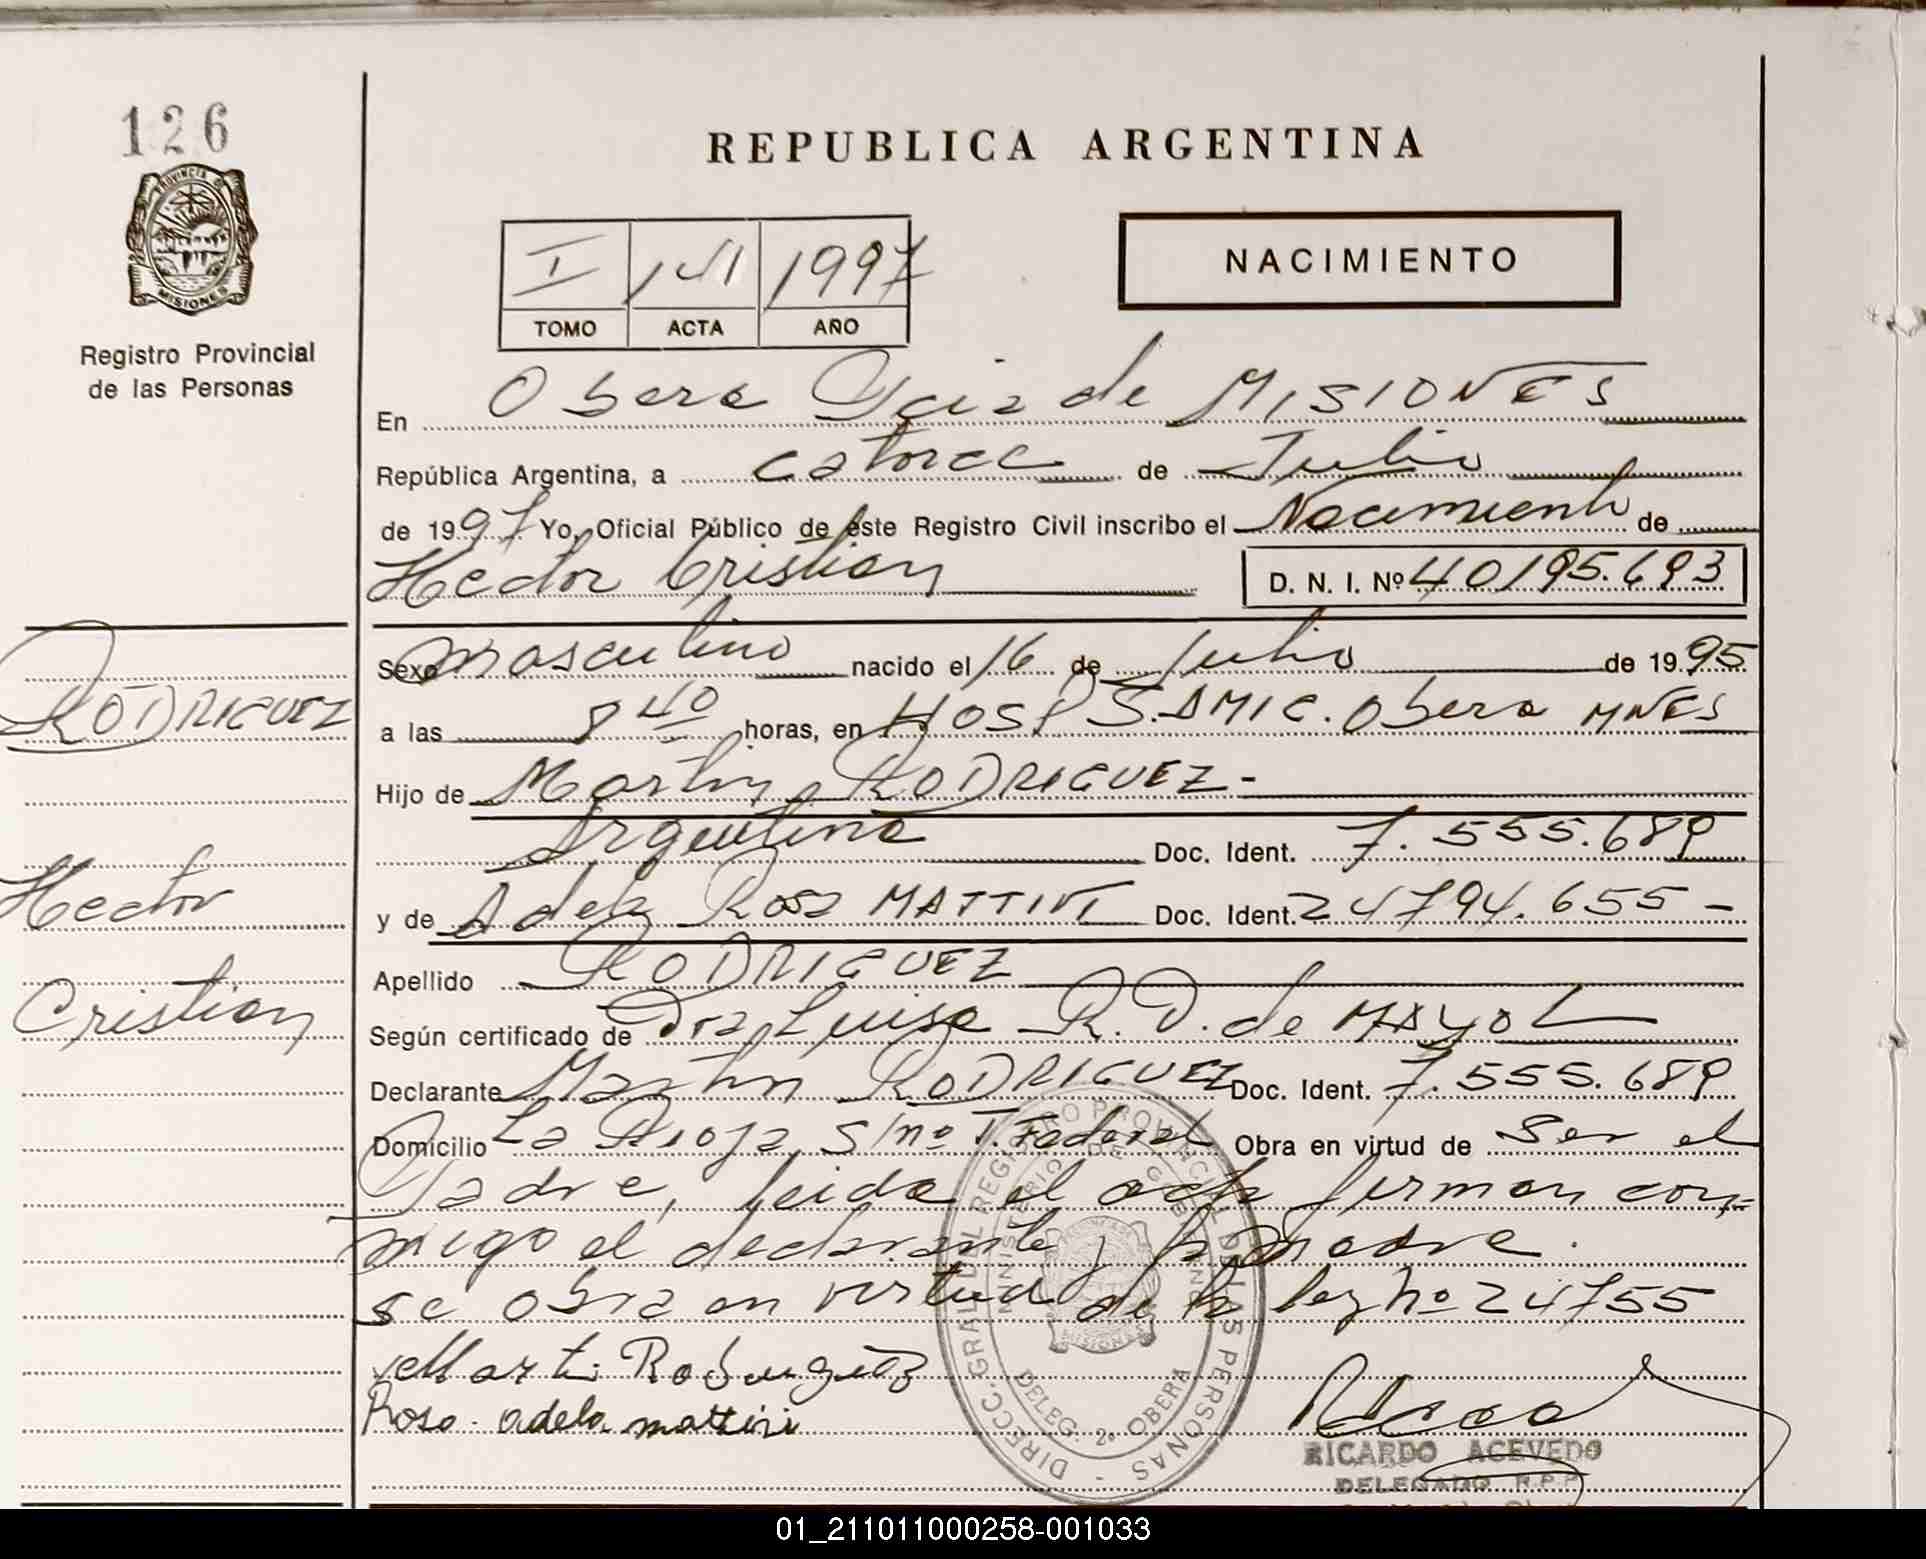 126
REPUBLICA ARGENTINA
PROVINCIA D
MISIONES
Registro Provincial
de las Personas
NACIMIENTO
I 1997
TOMO ACTA AÑO
En Obera Pcia de MISIONES
República Argentina, a catorce de Julio
de 1997 Yo, Oficial Público de este Registro Civil inscribo el Nacimiento de
Hector Cristian D. N. I. Nº 40195.693
Sexo masculino nacido el 16 de Julio de 1995
RODRIGUEZ
a las 8 40 horas, en HOSP S.AMIC. Obera MNES
Hijo de Martin RODRIGUEZ-
Argentina Doc. Ident. 7.555.689
Hector
y de Adela Rosa MATTIVI Doc. Ident. 24794.655-
Apellido RODRIGUEZ
Cristian
Según certificado de Dra Luisa R. D. de MAYOL
Declarante Martin RODRIGUEZ Doc. Ident. 7.555.689
Domicilio La Rioja s/nº T. Federal Obra en virtud de Ser el
Padre, leida el acta firman con-
migo el declarante y la Madre.
se obra en virtud de la ley nº 24755
Marti Rodriguez
Rosa adela mattivi
DIRECC. GRAL DEL REGISTRO PROVINCIAL DE LAS PERSONAS -
MINISTERIO DE GOBIERNO
MISIONES
DELEG. 2º OBERA
RICARDO ACEVEDO
DELEGADO R.P.P.
01_211011000258-001033